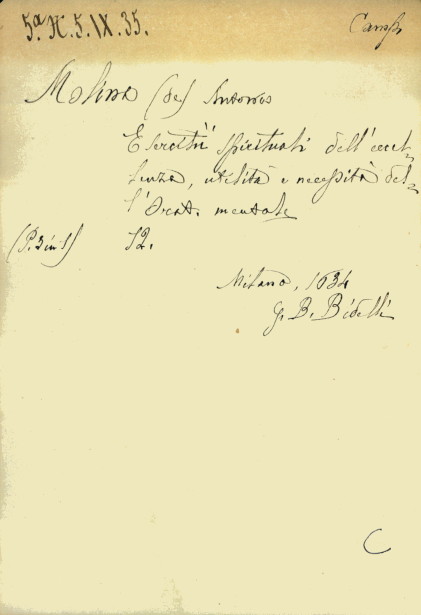 5ª N. 5. IX. 35.
Molina (de) Antonio
Esercitii spirituali dell'eccel-
lenza, utilità e necessità del-
l'Orat. mentale
(P. 3 in 1) 12.
Milano, 1634
G. B. Bidelli
C